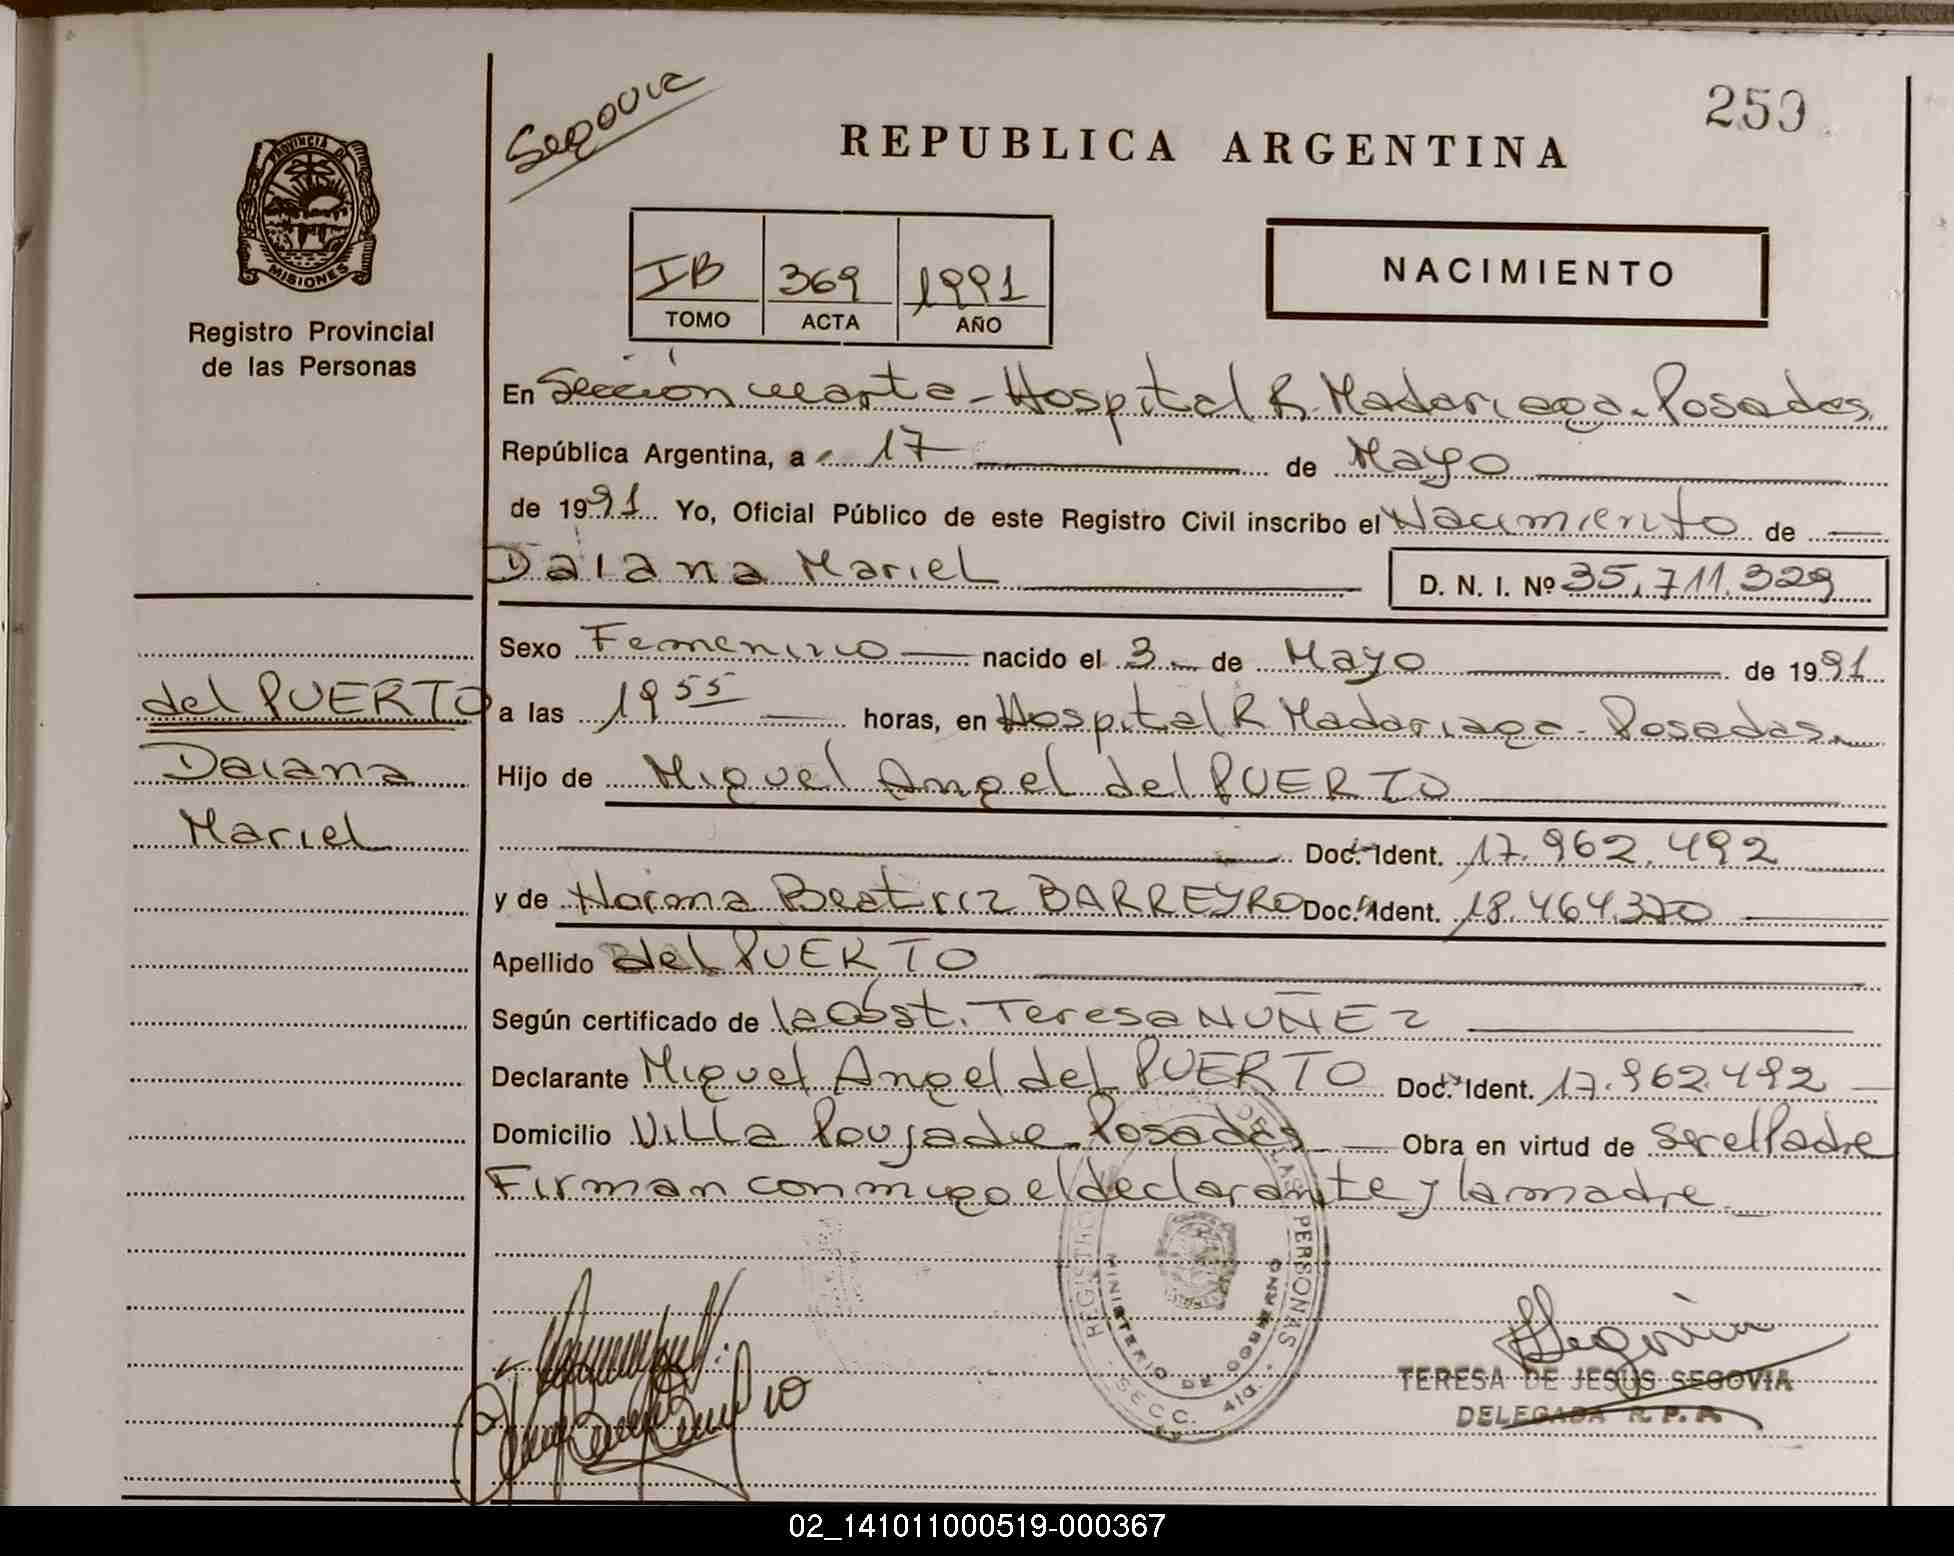 Segovia
250
REPUBLICA ARGENTINA
PROVINCIA DE
MISIONES
Registro Provincial
de las Personas
IB 369 1991
TOMO ACTA AÑO
NACIMIENTO
En Sección cuarta - Hospital R. Madariaga - Posadas
República Argentina, a 17 de Mayo
de 1991 Yo, Oficial Público de este Registro Civil inscribo el Nacimiento de
Daiana Mariel D. N. I. Nº 35.711.329
Sexo Femenino nacido el 3 de Mayo de 1991
del PUERTO
a las 19 55 horas, en Hospital R Madariaga - Posadas
Daiana
Hijo de Miguel Angel del PUERTO
Mariel
Doc. Ident. 17.962.492
y de Norma Beatriz BARREYRO Doc. Ident. 18.464.370
Apellido del PUERTO
Según certificado de la Obst. Teresa NUÑEZ
Declarante Miguel Angel del PUERTO Doc. Ident. 17.962.492
Domicilio Villa Poujade - Posadas Obra en virtud de ser el Padre
Firman conmigo el declarante y la madre
REGISTRO DE LAS PERSONAS
MINISTERIO DE GOBIERNO
SECC. 4ta.
Segovia
TERESA DE JESUS SEGOVIA
DELEGADA R. P. P.
02_141011000519-000367